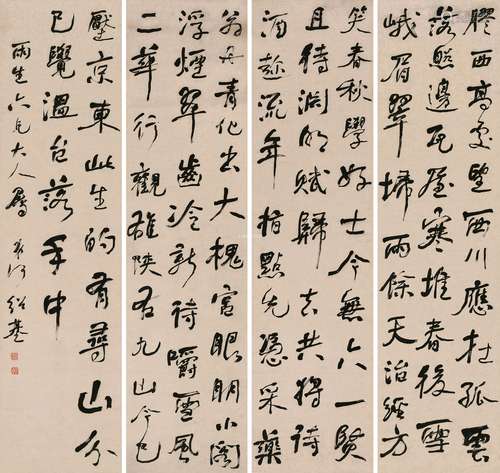 膠西高處望西川應在孤雲
落照邊瓦屋寒堆春後雪
峨眉翠埽雨餘天治經方
笑春秋學好士今無六一賢
且待淵明賦歸去共將詩
酒趁流年指點先憑采藥
翁丹青化出大槐宮眼明小閣
浮煙翠齒冷新詩嚼雪風
二華行觀雄陝右九山今已
壓京東此生的有尋山分
已覺溫台落手中
雨生六兄大人屬 弟何紹基